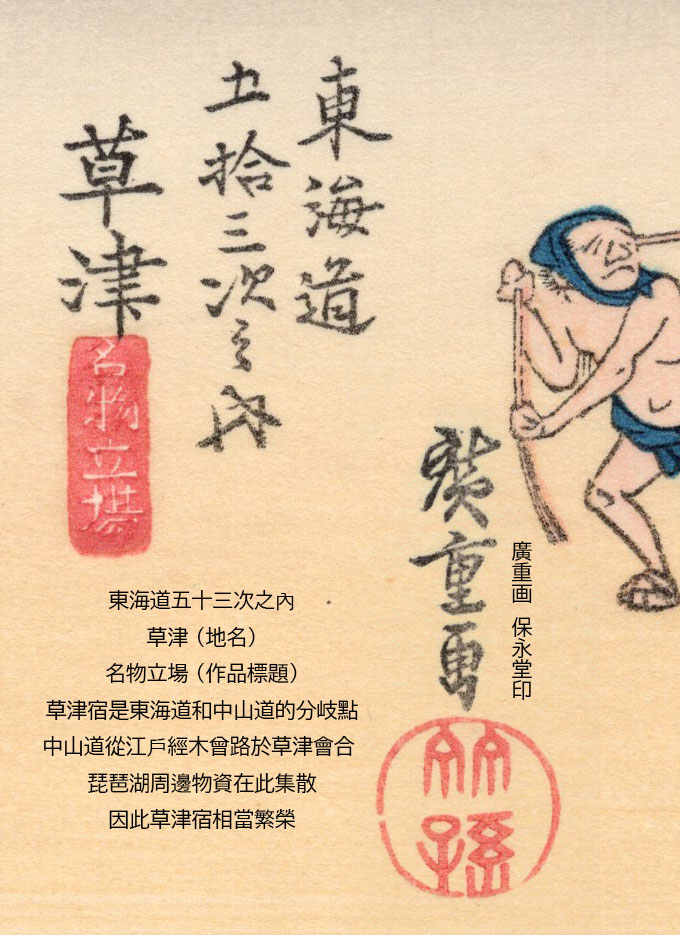 東海道
五拾三次之内
草津
名物立場
廣重画
竹孫
廣重画 保永堂印
東海道五十三次之內
草津（地名）
名物立場（作品標題）
草津宿是東海道和中山道的分岐點
中山道從江戶經木曾路於草津會合
琵琶湖周邊物資在此集散
因此草津宿相當繁榮